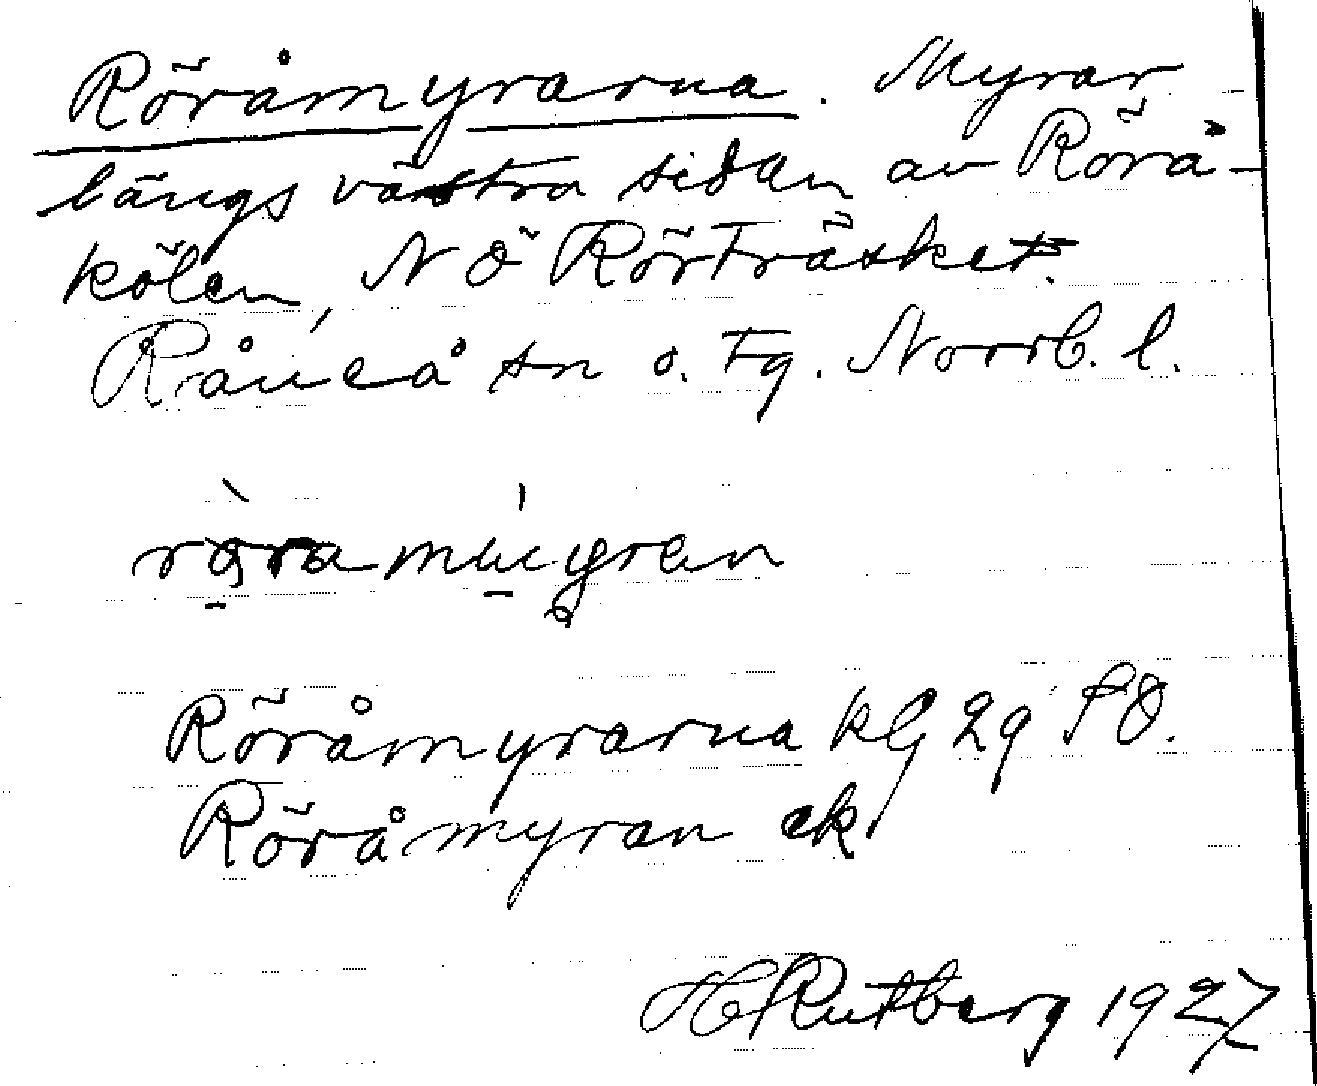 Röråmyrarna. Myrar
längs västra sidan av Rörå-
kölen, NÖ Rörträsket.
Råneå sn o. tg. Norrb. l.
Röråmyrarna kg 29 SO.
Röråmyran ek
H Rutberg 1927